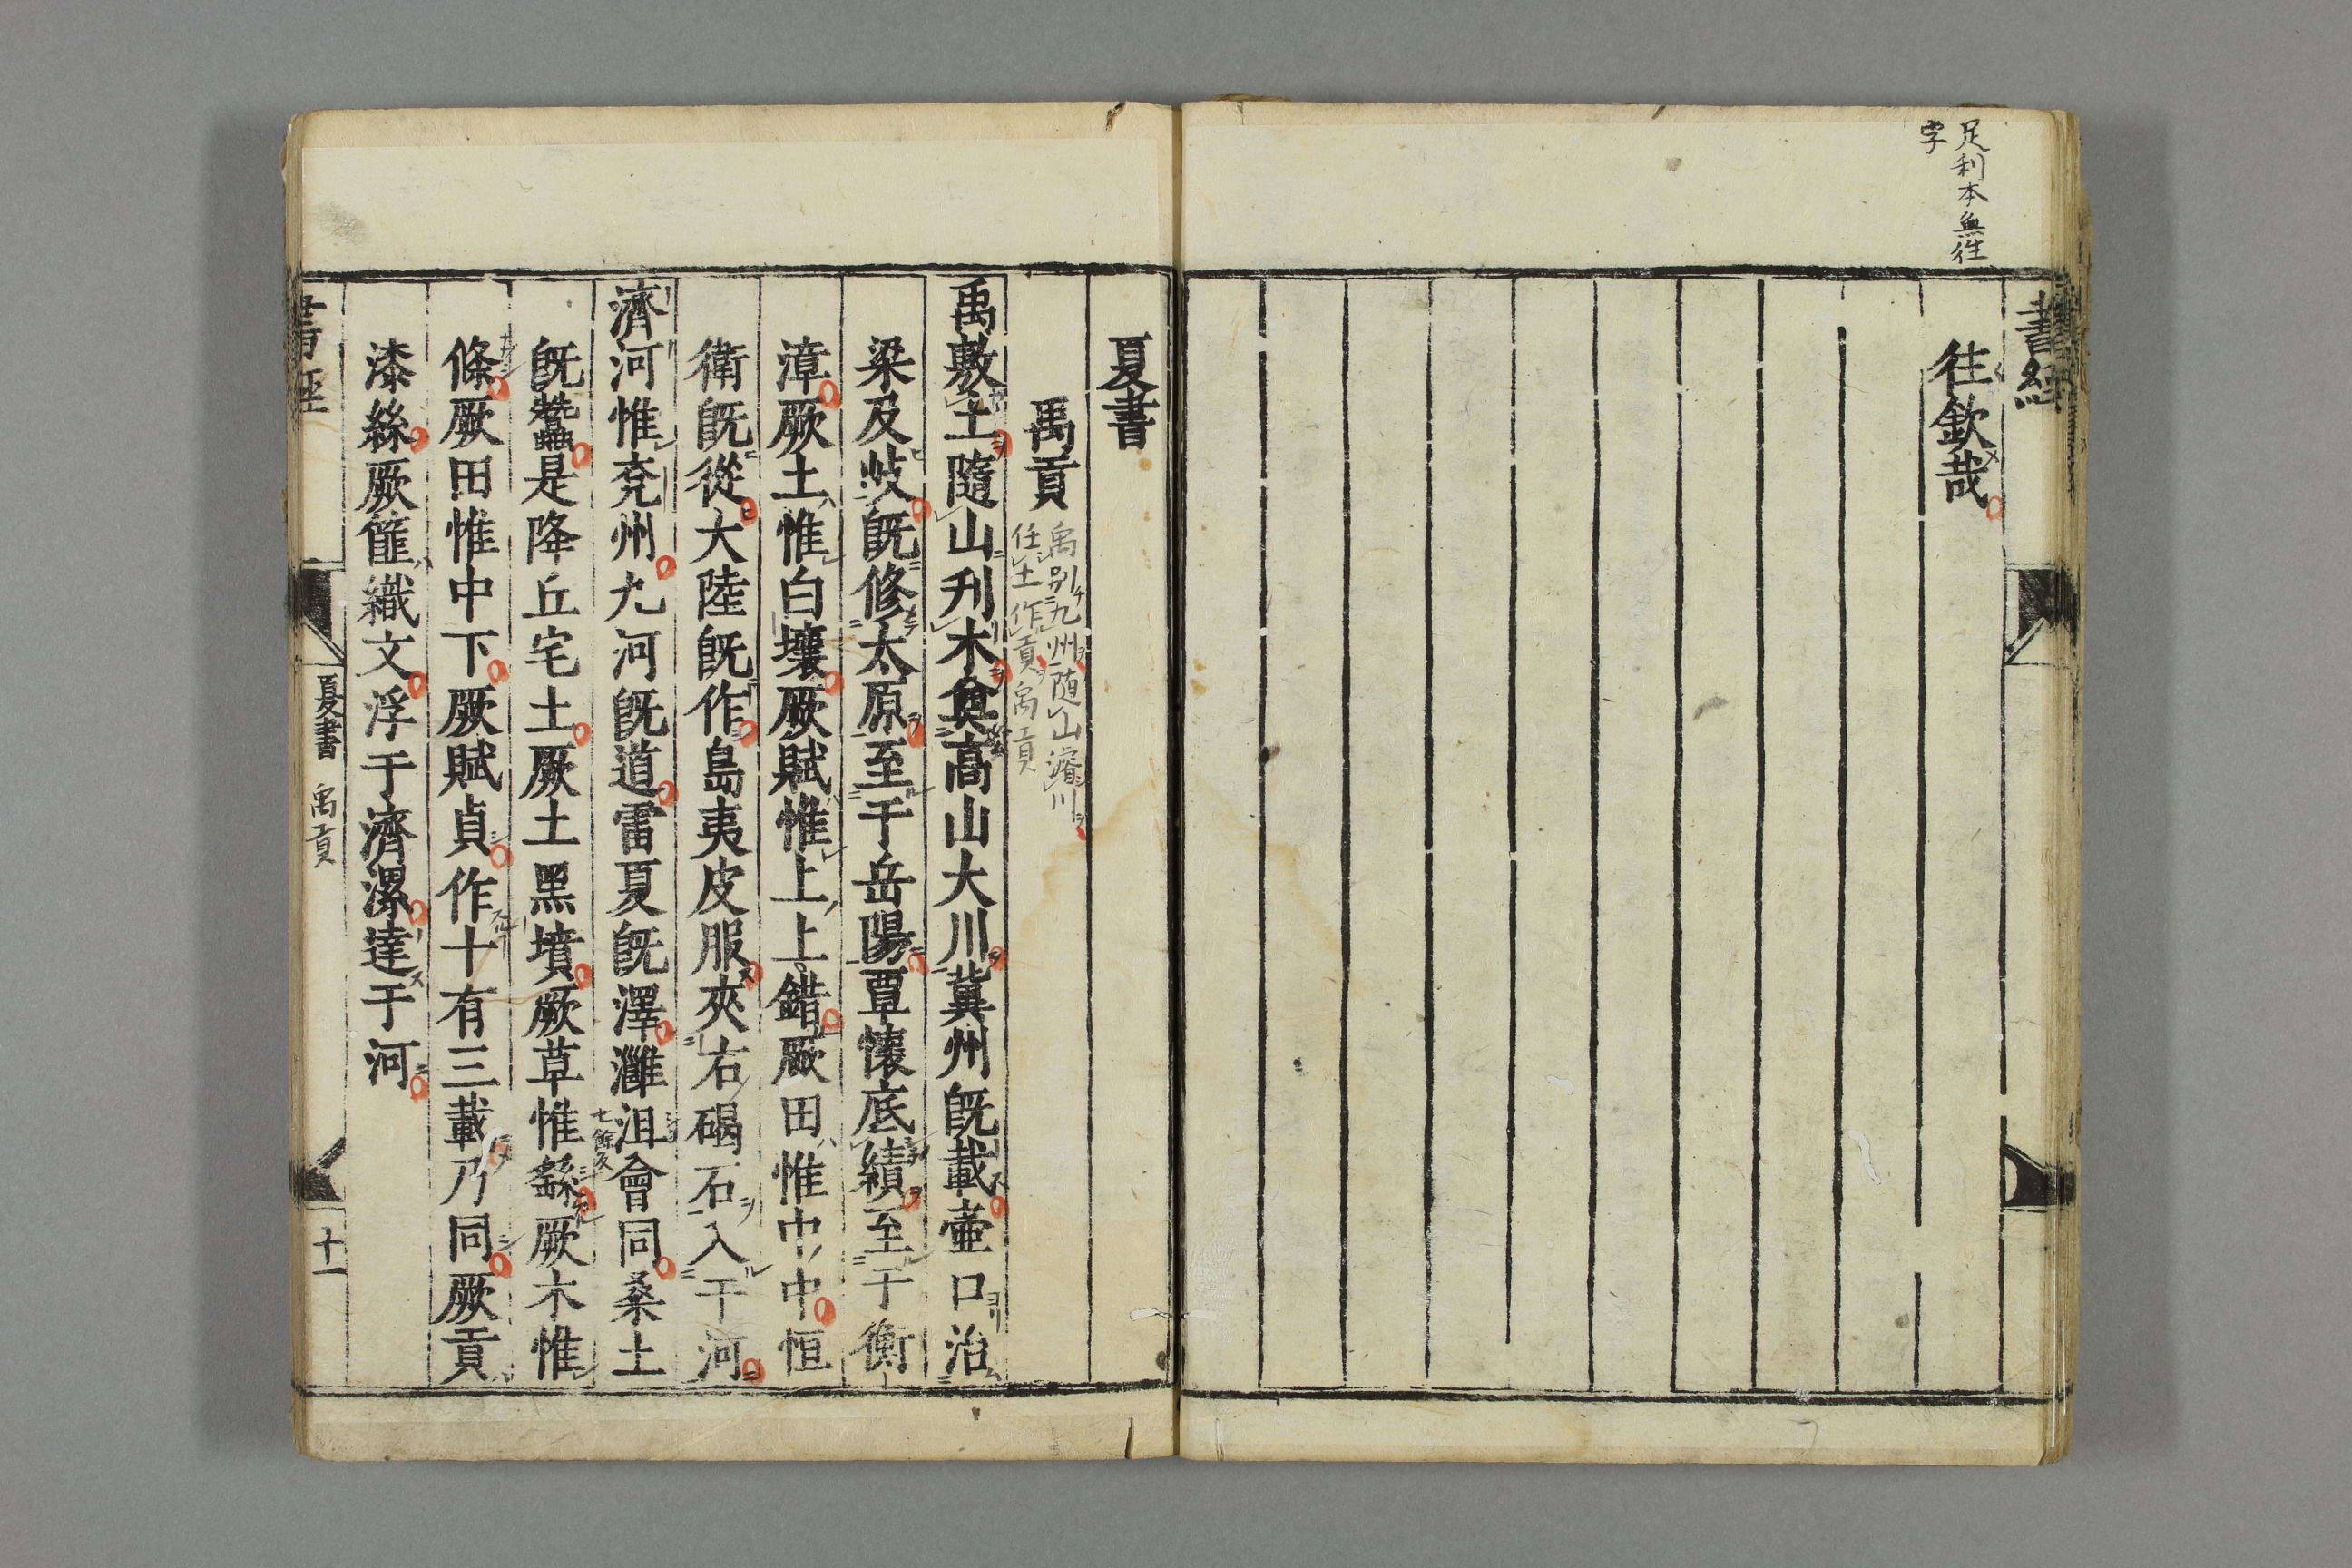 足利本無往
字
書經
往欽哉
夏書
禹貢
禹別九州隨山濬川
任土作貢禹貢
禹敷土隨山刋木奠高山大川冀州旣載壷口治
梁及岐旣修太原至于岳陽覃懷底績至于衡
漳厥土惟白壤厥賦惟上上錯厥田惟中中恒
衛旣從大陸旣作島夷皮服夾右碣石入于河
濟河惟兖州九河旣道雷夏旣澤灉沮會同桑土
七餘反
旣蠶是降丘宅土厥土黑墳厥草惟繇厥木惟
條厥田惟中下厥賦貞作十有三載乃同厥貢
漆絲厥篚織文浮于濟漯達于河
書經
夏書 禹貢
十一